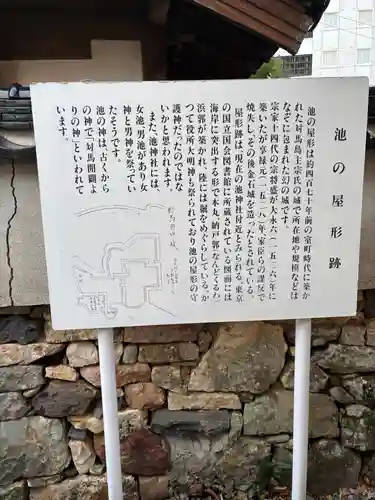 池の屋形跡
池の屋形は約四百七十年前の室町時代に築か
れた対馬島主宗氏の城で所在地や規模などは
なぞに包まれた幻の城です。
宗家十四代の宗将盛が大永六(一五二六)年に
築いたが享禄元(一五二八)年家臣らの謀反で
焼失し、その後金石城を造ったとされている。
屋形跡は現在の池神社付近とみられる。東京
の国立国会図書館に所蔵されている図面には
海岸に突出する形で本丸、納戸郭などくるみ
浜郭が築かれ、陸には堀をめぐらしている。か
つて役所大明神も祭られており池の屋形の守
護神だったのではな
いかと思われます。
また、池神社には、
女池、男池があり女
神と男神を祭ってい
たそうです。
池の神は、古くから
の神で「対馬開闢よ
りの神」といわれて
います。